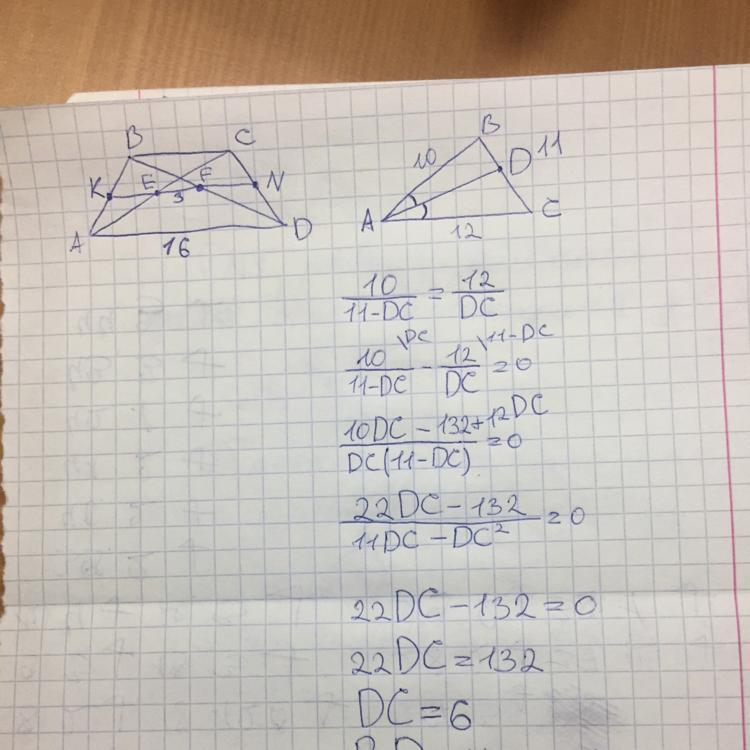 B C
K E F N
3
A D
16
B
10 D 11
A C
12
10/(11-DC) = 12/DC
10/(11-DC) \DC - 12/DC \11-DC = 0
(10DC - 132 + 12DC)/(DC(11-DC)) = 0
(22DC - 132)/(11DC - DC²) = 0
22DC - 132 = 0
22DC = 132
DC = 6